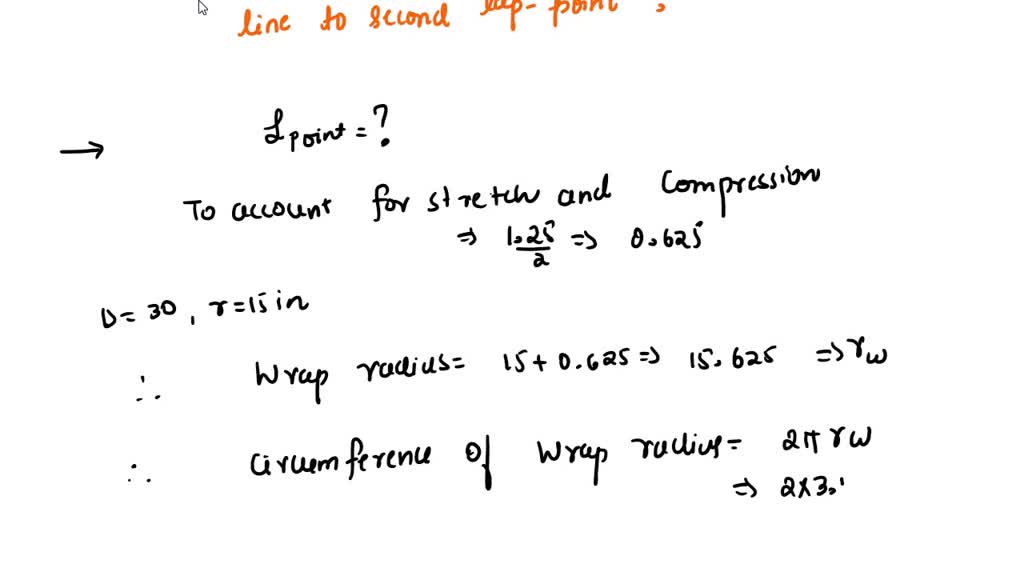 line to second lap-point,
→ L point = ?
To account for stretch and Compression
⇒ 1.25/2 ⇒ 0.625
D = 30, r = 15 in
∴ Wrap radius = 15 + 0.625 ⇒ 15.625 ⇒ rw
∴ Circumference of Wrap radius = 2π rw
⇒ 2x3.1